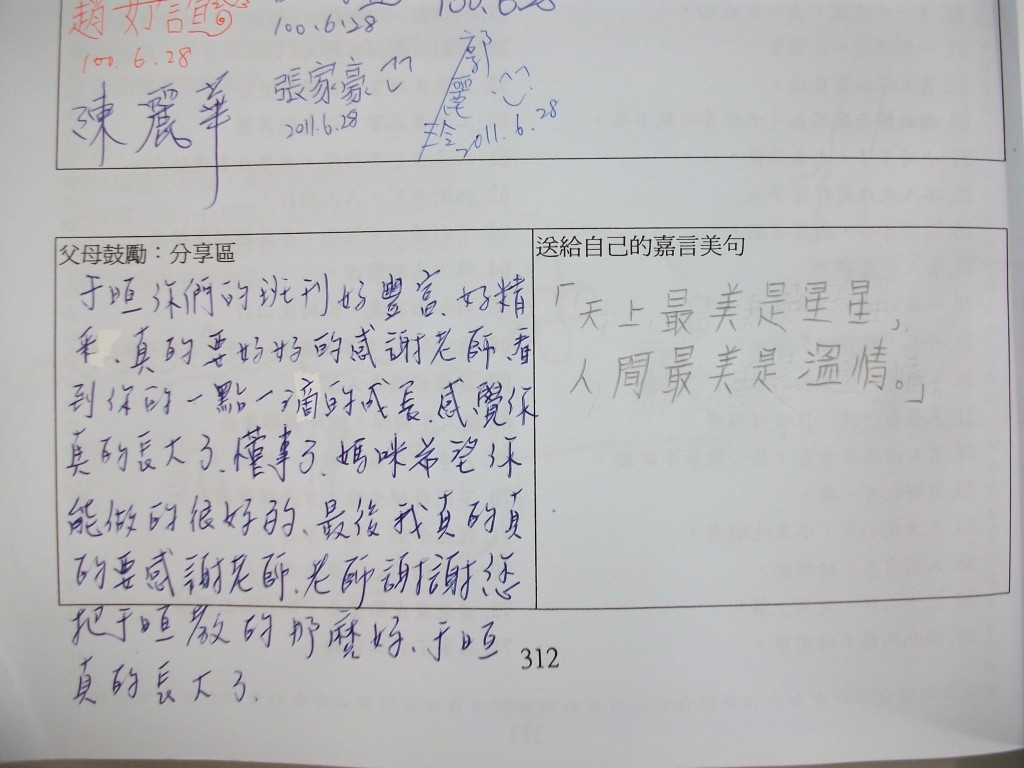 趙妤證
100.6.28
100.6.28
100.6.28
陳麗華
張家豪
2011.6.28
郭麗玲
2011.6.28
父母鼓勵：分享區
于晅你們的班刊好豐富、好精
釆、真的要好好的感謝老師、看
到你的一點一滴的成長、感覺你
真的長大了、懂事了、媽咪希望你
能做的很好的、最後我真的真
的要感謝老師、老師謝謝您
把于晅教的那麼好、于晅
真的長大了、
送給自己的嘉言美句
「天上最美是星星，
人間最美是溫情。」
312